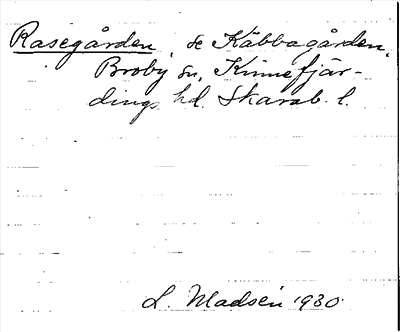 Rasegården, se Käbbagården,
Broby sn, Kinnefjär-
dings hd. Skarab. l.
L. Madsén 1930